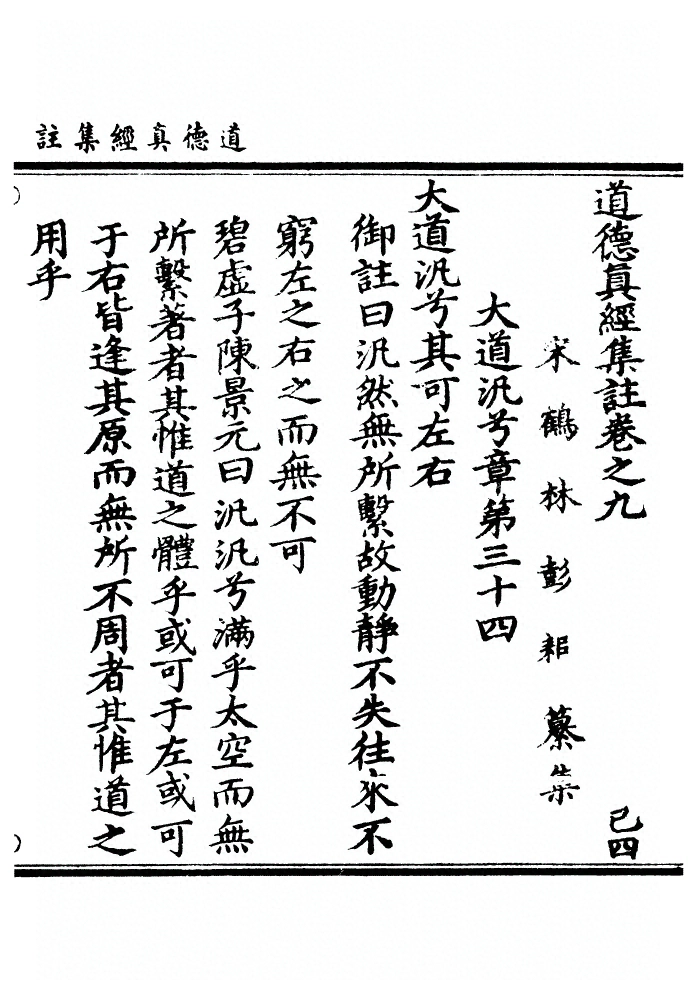 道德真經集註
道德真經集註卷之九 己四
宋鶴林彭耜纂集
大道汎兮章第三十四
大道汎兮其可左右
御註曰汎然無所繫故動靜不失往來不
窮左之右之而無不可
碧虛子陳景元曰汎汎兮滿乎太空而無
所繫著者其惟道之體乎或可于左或可
于右皆逢其原而無所不周者其惟道之
用乎